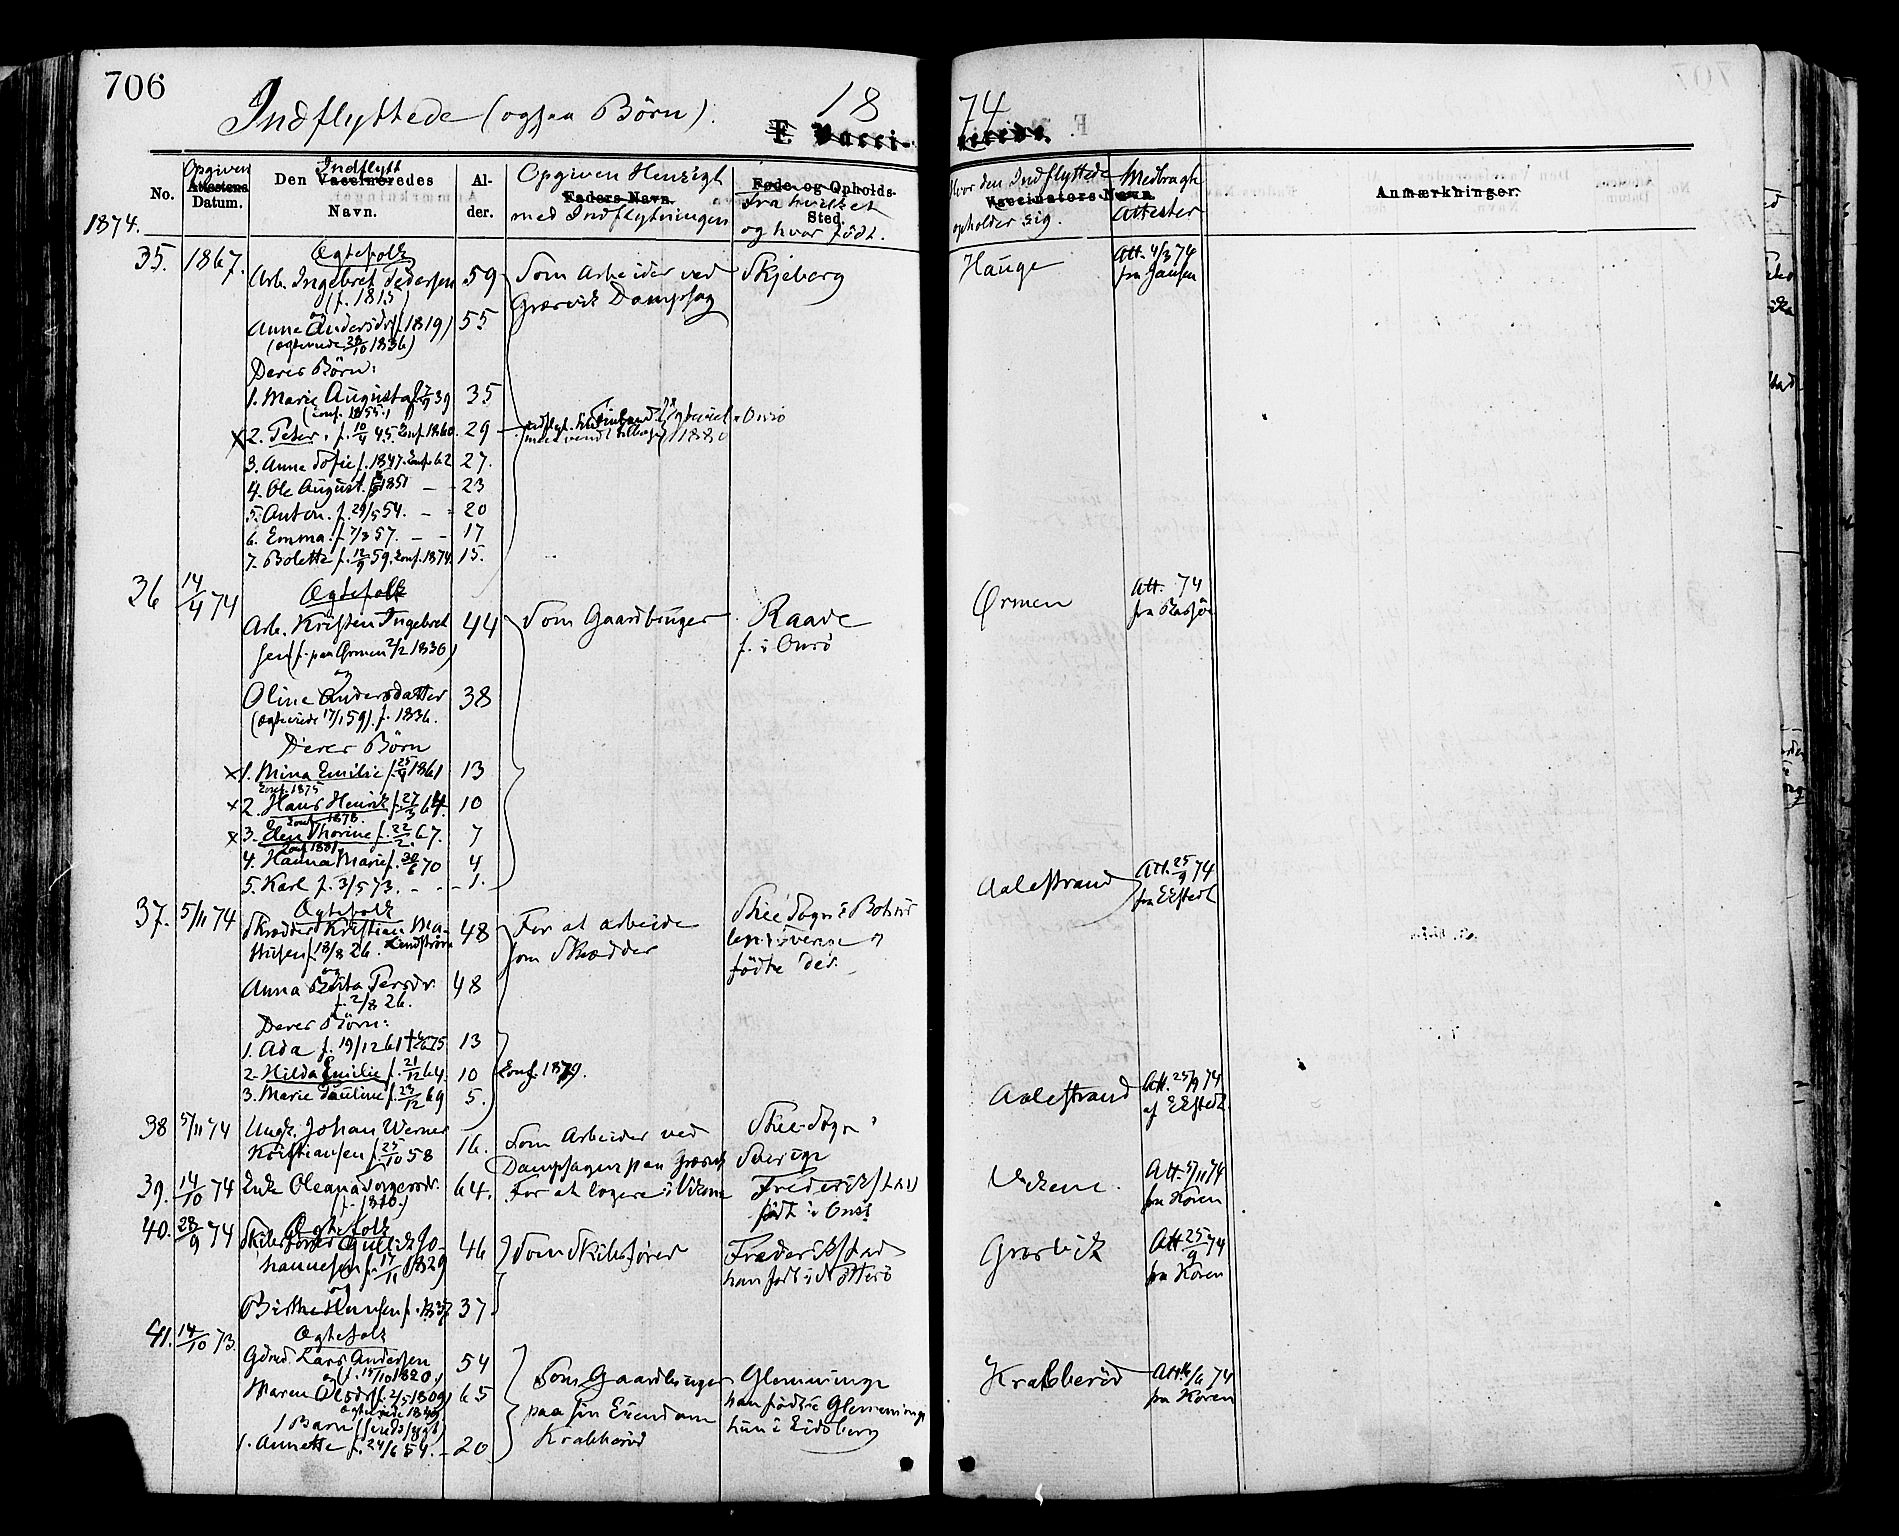 706
Indflyttede (ogsaa Børn). 18 74
F. Vacci- nerede.
No. Opgiven Attestens Datum. Den Indflytt Vaccineredes Navn. Al- der. Opgiven Hensigt med Indflytningen Faders Navn. Føde- og Opholds- Sted. fra hvilket og hvor født. Hvor den Indflyttede opholder sig. Vaccinators Navn. Medbragte Attester Anmærkninger.
1874.
35. 1867. Ægtefolk
Arb. Ingebret Pedersen 59 Som Arbeider ved Skjeberg Hauge Att. 4/3 74
(f. 1815) Græsvik Dampsag fra Jansen
og
Anna Andersdr (f. 1819) 55
(ægteviede 28/10 1836)
Deres Børn:
1. Marie Augusta 39 35
(conf. 1855)
x 2. Peter, f. 10/4 45. Conf. 1860. 29 1880 Onsø
3. Anna Sofie f. 1847. Conf. 62 27.
4. Ole August. 1851 - - 23
5. Anton. f. 29/5 54. - - 20
6. Emma f. 7/3 57. - - 17
7. Bolette f. 12/9 59. Conf. 1874. 15.
36 14/4 74 Ægtefolk
Arb. Kristen Ingebret 44 Som Gaardbruger Raade Ørmen Att. 74
sen (f. paa Ørmen 2/2 1830) f. i Onsø
og
Oline Andersdatter 38
(ægteviede 17/1 59). f. 1836.
Deres Børn
x 1. Mina Emilie f. 25/4 1861 13
Conf. 1875
x 2. Hans Henrik f. 27/3 64. 10
Conf. 1878.
x 3. Elen Thorine f. 22/2 67. 7
Conf. 1881.
4. Hanna Marie f. 30/6 70 4
5. Karl f. 3/5 73. - - 1.
37. 5/11 74 Ægtefolk
Skrædder Kristian Ma- 48 For at arbeide Skee Sogn i Bohus Aalestrand Att. 25/9 74
thisen f. 18/8 26. Lindstrøm som Skrædder len i Sverige fra Ekstedt
og
Anna Brita Persdr. 48 fødte der.
f. 2/8 26.
Deres Børn:
1. Ada f. 19/12 61 13
2. Hilda Emilie f. 21/12 64. 10 Conf. 1879.
3. Marie Pauline f. 23/12 69 5.
38 5/11 74 Ungk. Johan Werner 16. Som Arbeider ved Skee Sogn i Aalestrand Att. 25/9 74
Kristiansen f. 25/10 58 Dampsagen paa Græsvik Sverige af Ekstedt
39. 14/10 74 Enke Oleana Torgersdr. 64. For at logere i Vikene Frederikstad Vikene. Att. 5/11 74
(f. 1810.) født i Onsø fra Koren
40. 28/9 74 Ægtefolk
Skibsfører Gullik Jo- 46 Som Skibsfører Frederikstad Græsvik Att 25/9 74
hannesen f. 17/11 1829 han født i Nøtterø fra Koren
og
Birthe Hansen f. 1837 37.
41. 14/10 73. Ægtefolk
Gdmd. Lars Andersen 54 Som Gaardbruger Glemminge Krabberød Att 16/6 74
(f. 15/10 1820) paa sin Eiendom han født i Glemminge fra Koren
og
Maren Olsdr (f. 2/5 1809) 65 Krabberød hun i Eidsberg
ægteviede 1849
1 Barn
1. Annette f. 24/6 54. - 20.